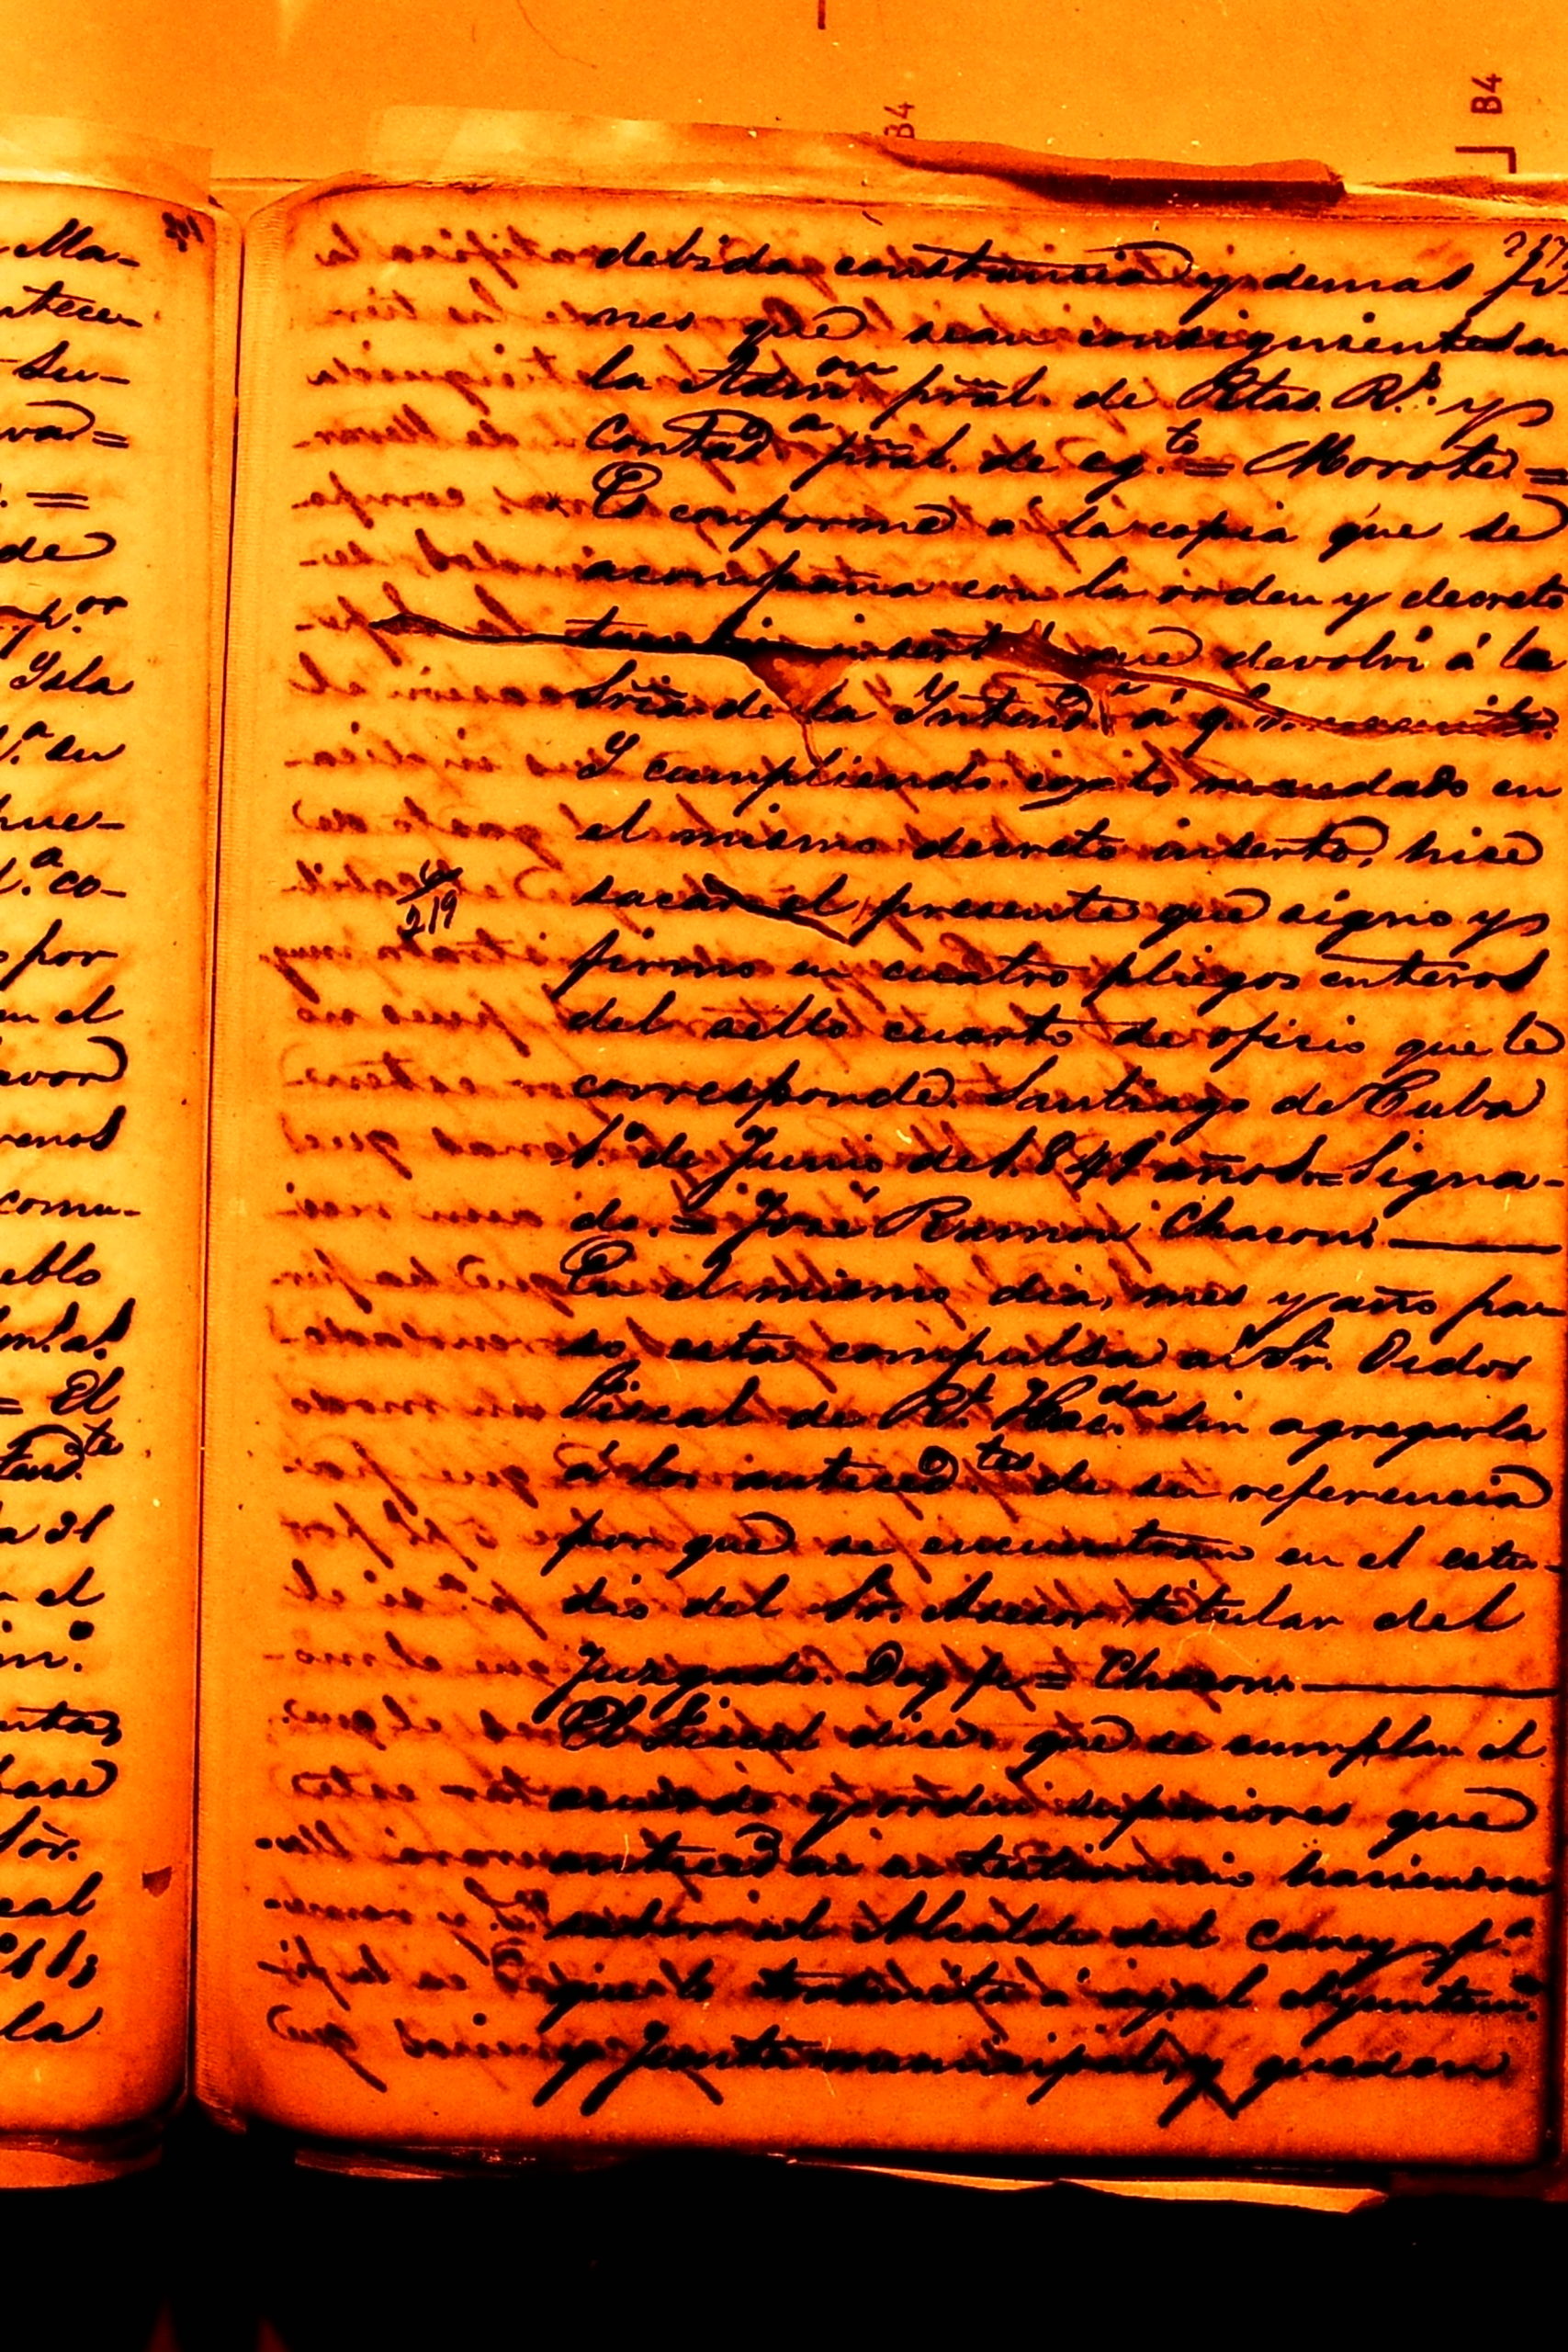 B4
B4
Ma-
su-
de
or
Ysla
su
co-
por
en el
comu-
= El
el
la
debida constancia y demas fi
nes que sean consiguientes en
la Adm.on pral. de Rtas. R.s y
Contad.a pral. de eg.to = Morote =
Es conforme a la copia que se
acompaña con la orden y decreto
insert que devolvi á la
Sria de la Intend.a á q.
Y cumpliendo con lo mandado en
el mismo decreto inserto, hice
sacar el presente que signo y
219
firmo en cuatro pliegos enteros
del sello cuarto de oficio que le
corresponde. Santiago de Cuba
1.o de Junio de 1.841 años = Signa-
do. = José Ramon Chacon.
En el mismo dia, mes y año pa
so esta compulsa al Sr. Oidor
Fiscal de R.l Hac.da sin agregarla
á los anteced.tes de su referencia
por que se encuentran en el estu-
dio del Sr. Asesor titular del
Juzgado. Doy fe = Chacon.
El Fiscal dice: que se cumplan el
acuerdo y orden superiores que
anteced en testimonio haciendo
saber al Alcalde del Caney p.a
que lo trasmita á aq.el Ayuntam.to
y Junta municipal, y queden